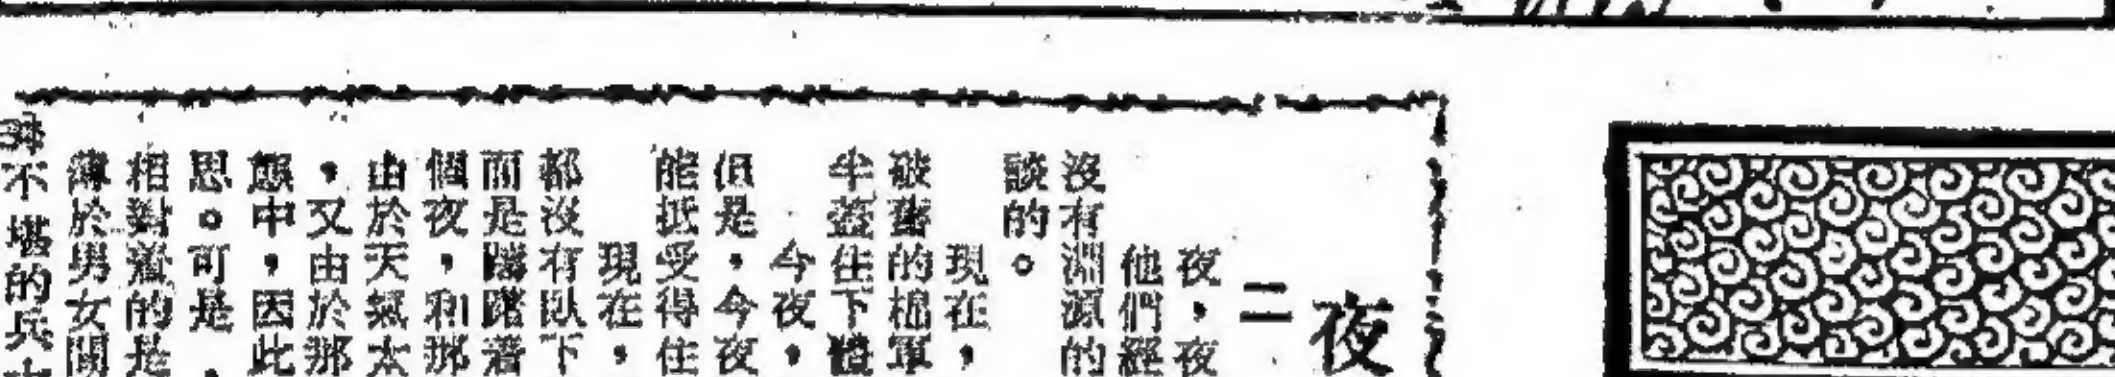 夜
二
夜，夜
他們經
沒有淵源的
談的。
現在，
破舊的棉軍
半蓋住下體
今夜，
但是，今夜
能抵受得住
現在，
都沒有臥下
而是踢躂着
個夜，和那
由於天氣太
，又由於那
態中，因此
思。可是，
相對着的是
薄於男女間
不堪的兵